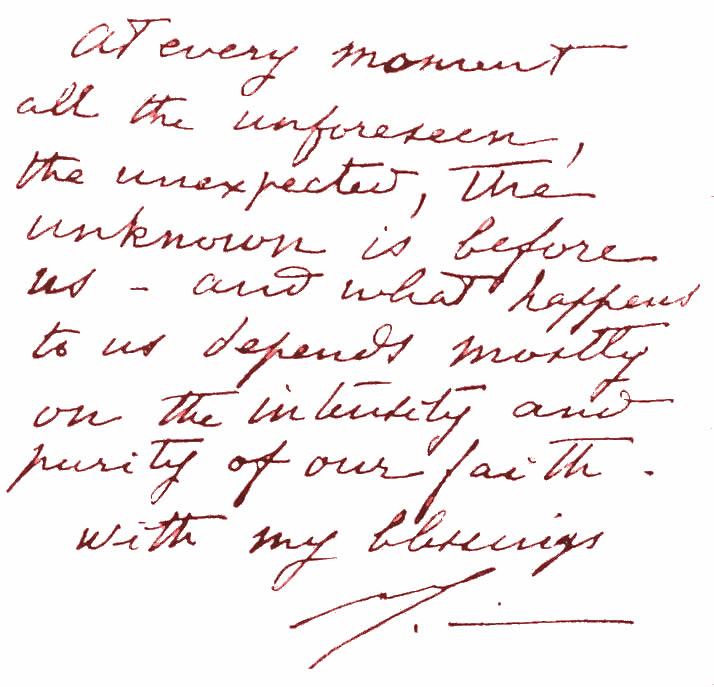 At every moment
all the unforeseen,
the unexpected, the
unknown is before
us - and what happens
to us depends mostly
on the intensity and
purity of our faith.
with my blessings